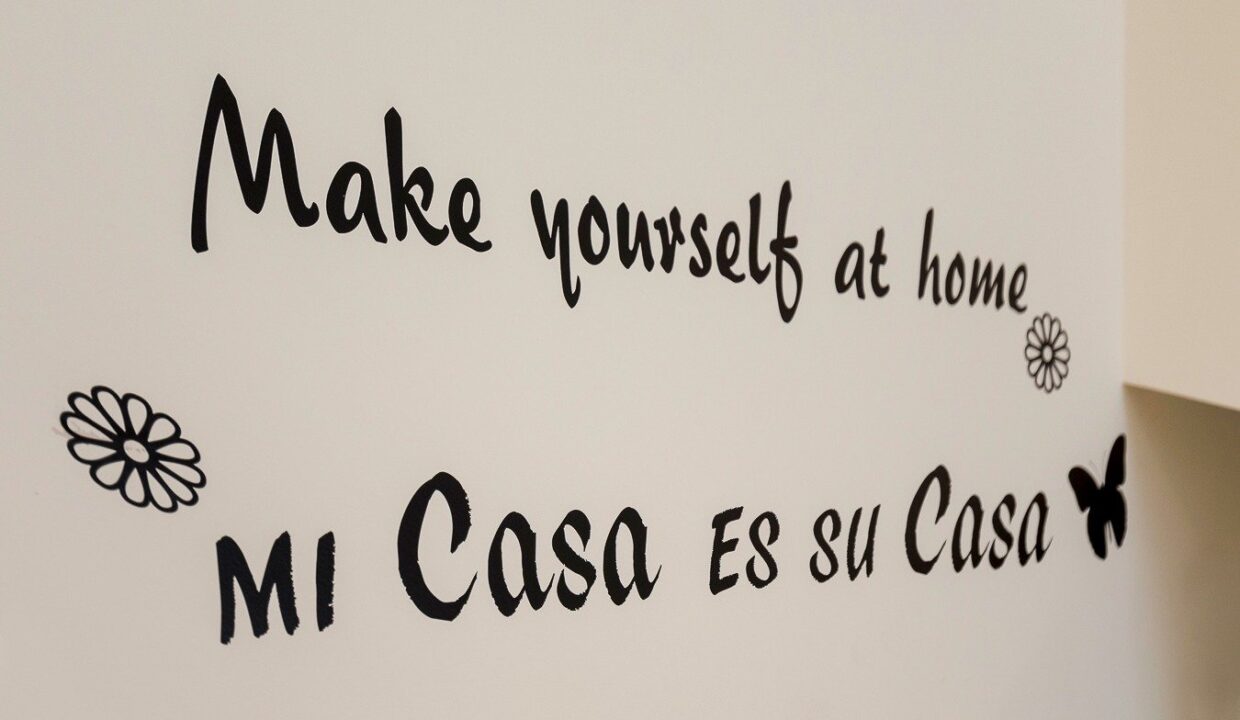 Make yourself at home
MI Casa ES SU Casa